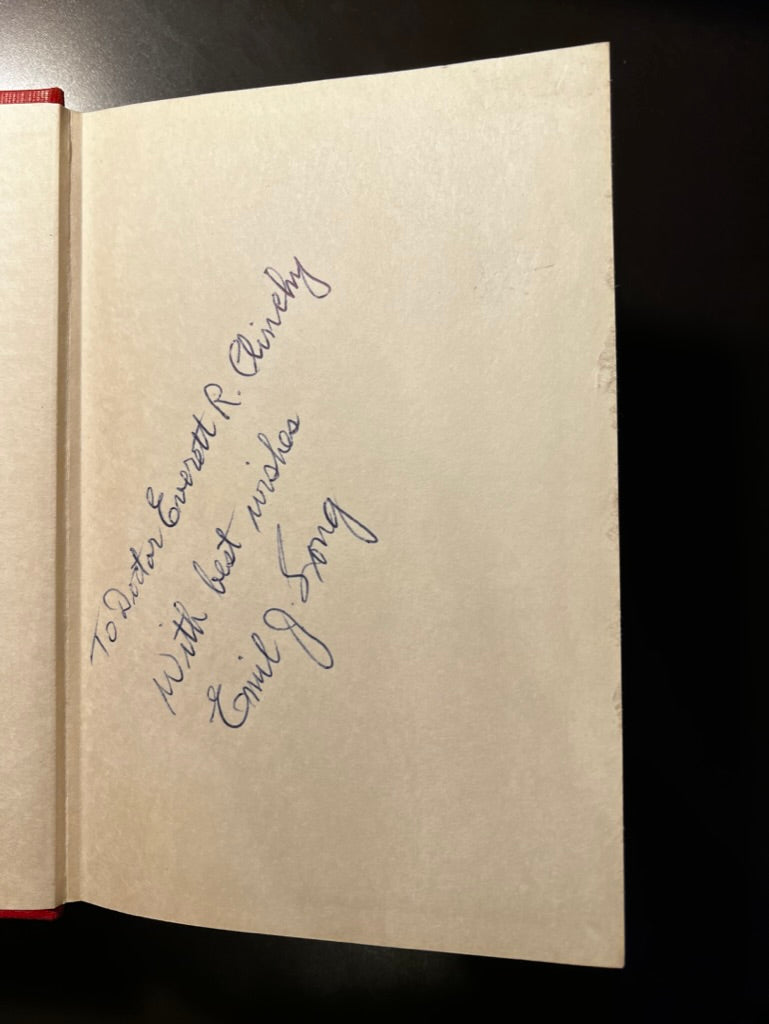 To Doctor Everett R. Clinchy
With best wishes
Emil J. Song